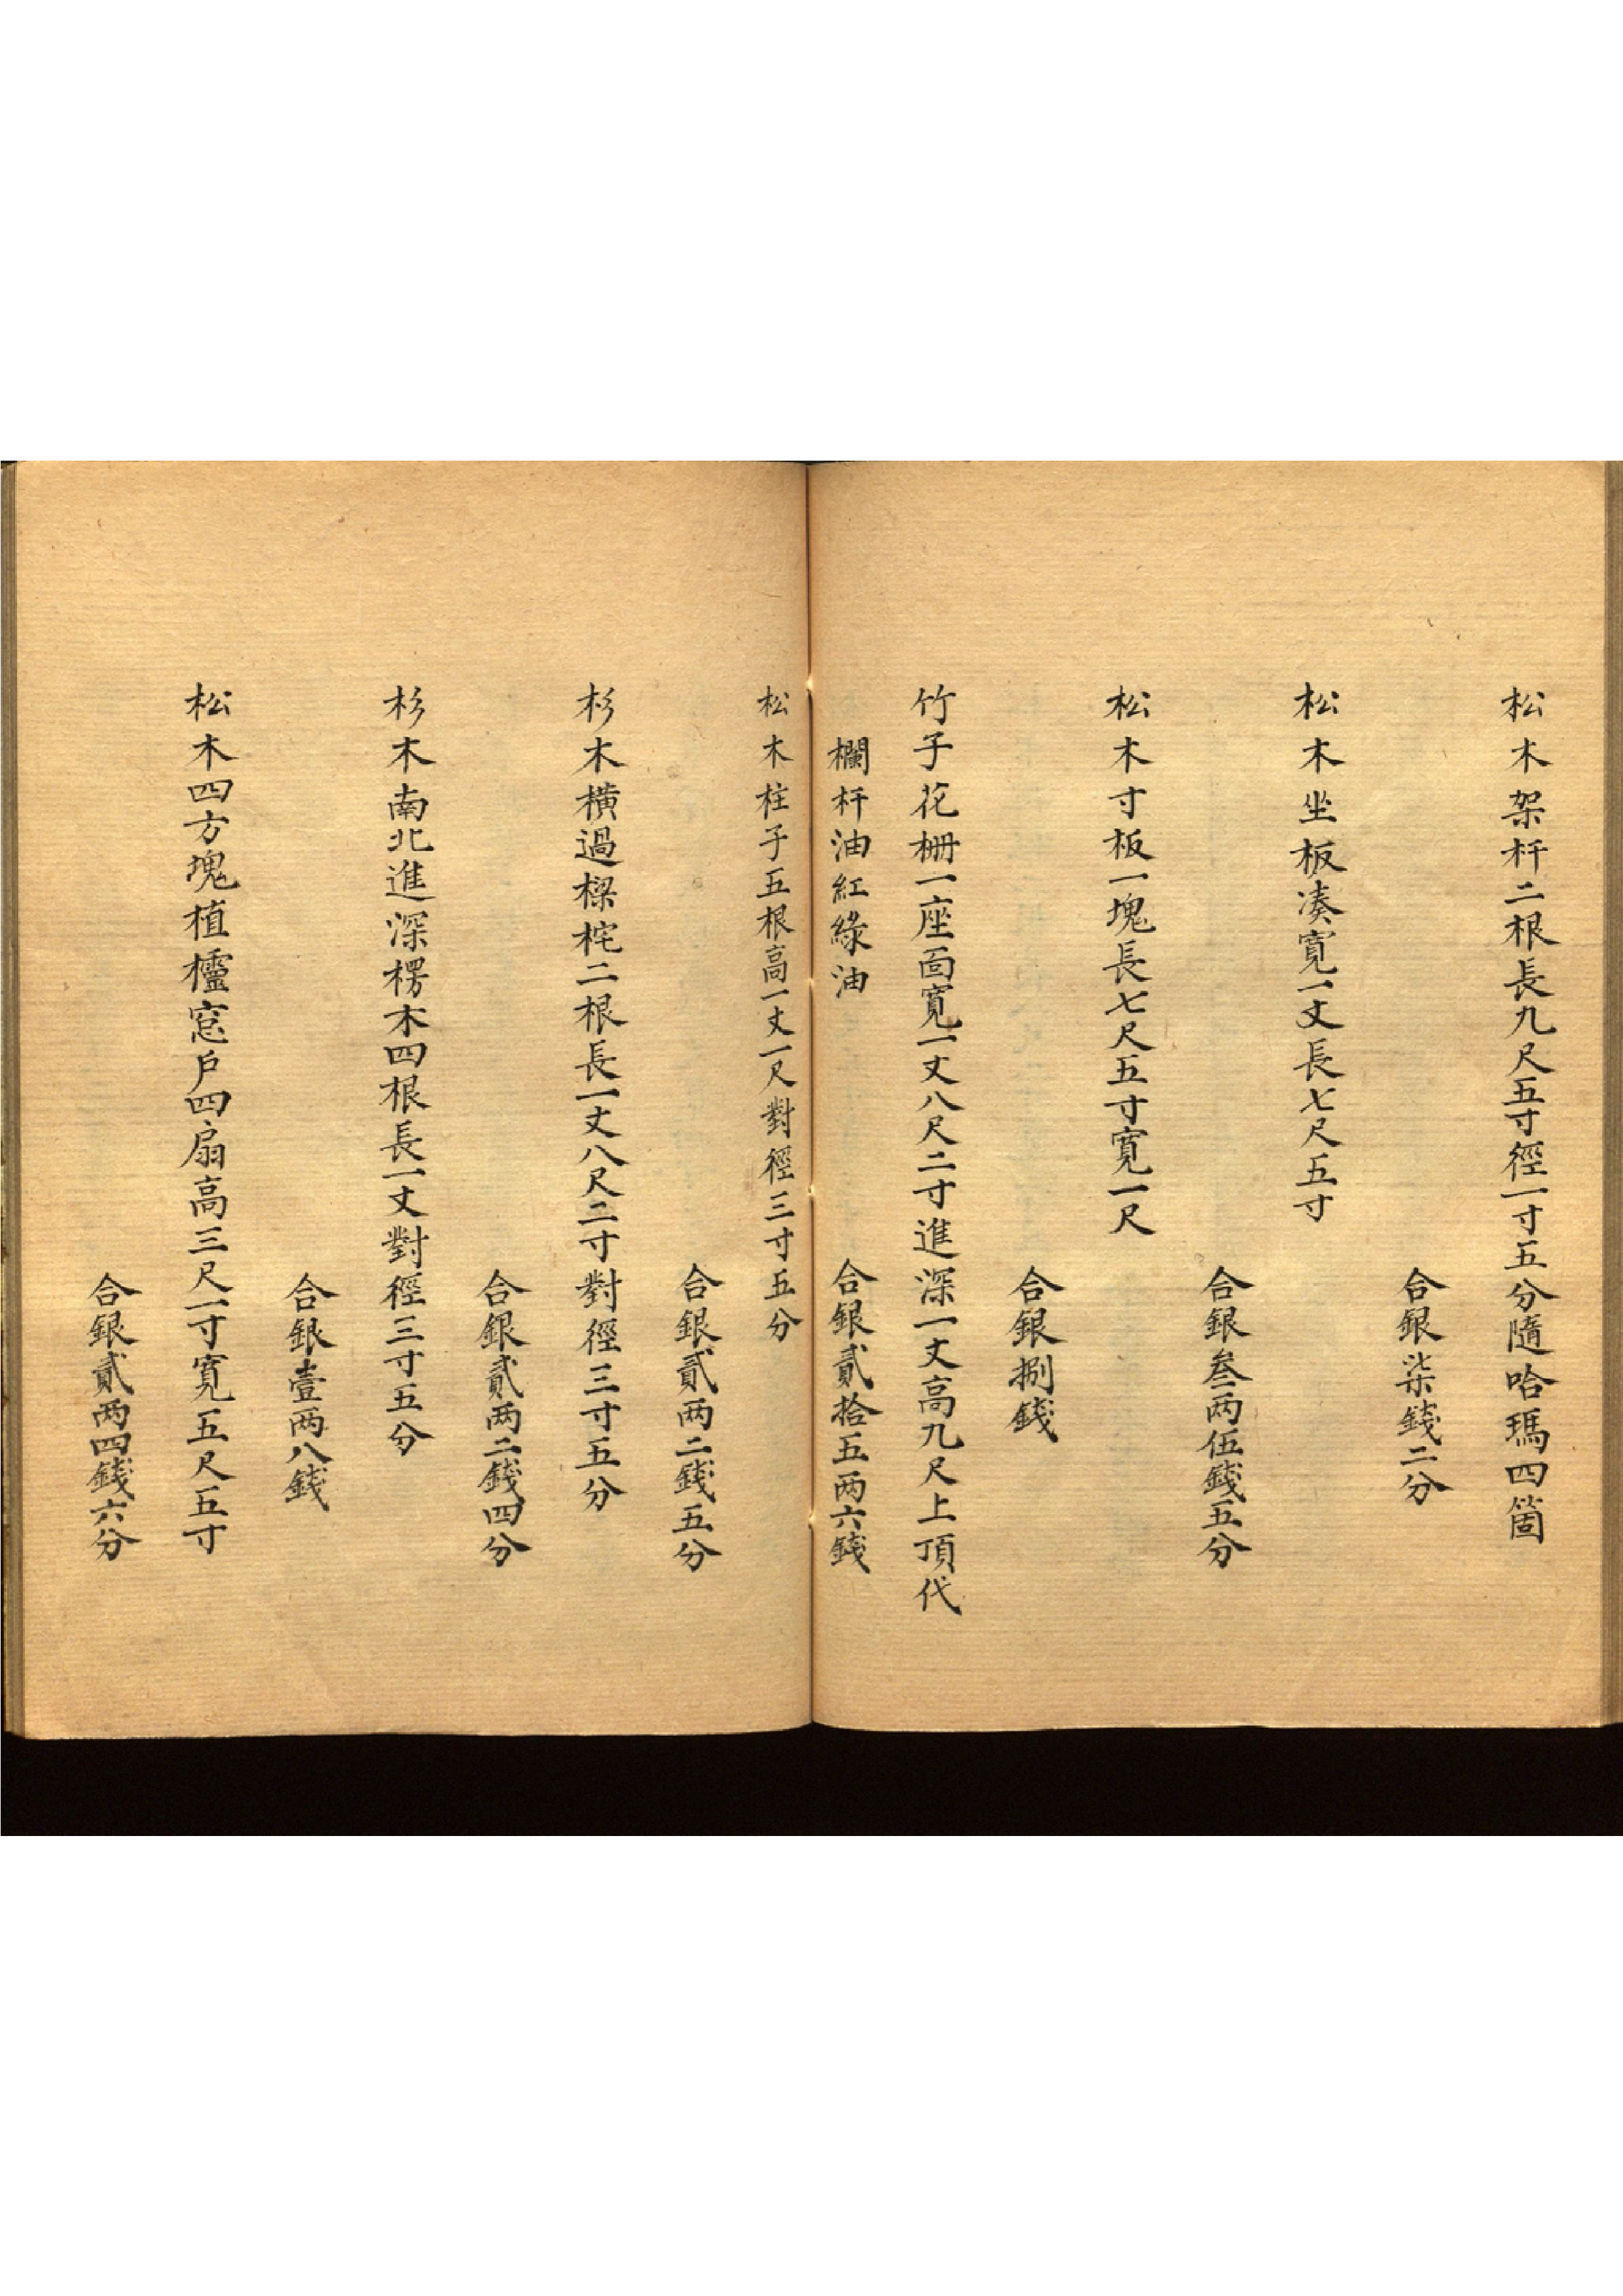 松木架杆二根長九尺五寸徑一寸五分隨哈瑪四箇
合銀柒錢二分
松木坐板凑寬一丈長七尺五寸
合銀叁两伍錢五分
松木寸板一塊長七尺五寸寬一尺
合銀捌錢
竹子花栅一座面寬一丈八尺二寸進深一丈高九尺上頂代
欄杆油紅綠油
合銀貳拾五两六錢
松木柱子五根高一丈一尺對徑三寸五分
合銀貳两二錢五分
杉木橫過樑柁二根長一丈八尺二寸對徑三寸五分
合銀貳两二錢四分
杉木南北進深楞木四根長一丈對徑三寸五分
合銀壹两八錢
松木四方塊植欞窓戶四扇高三尺一寸寬五尺五寸
合銀貳两四錢六分